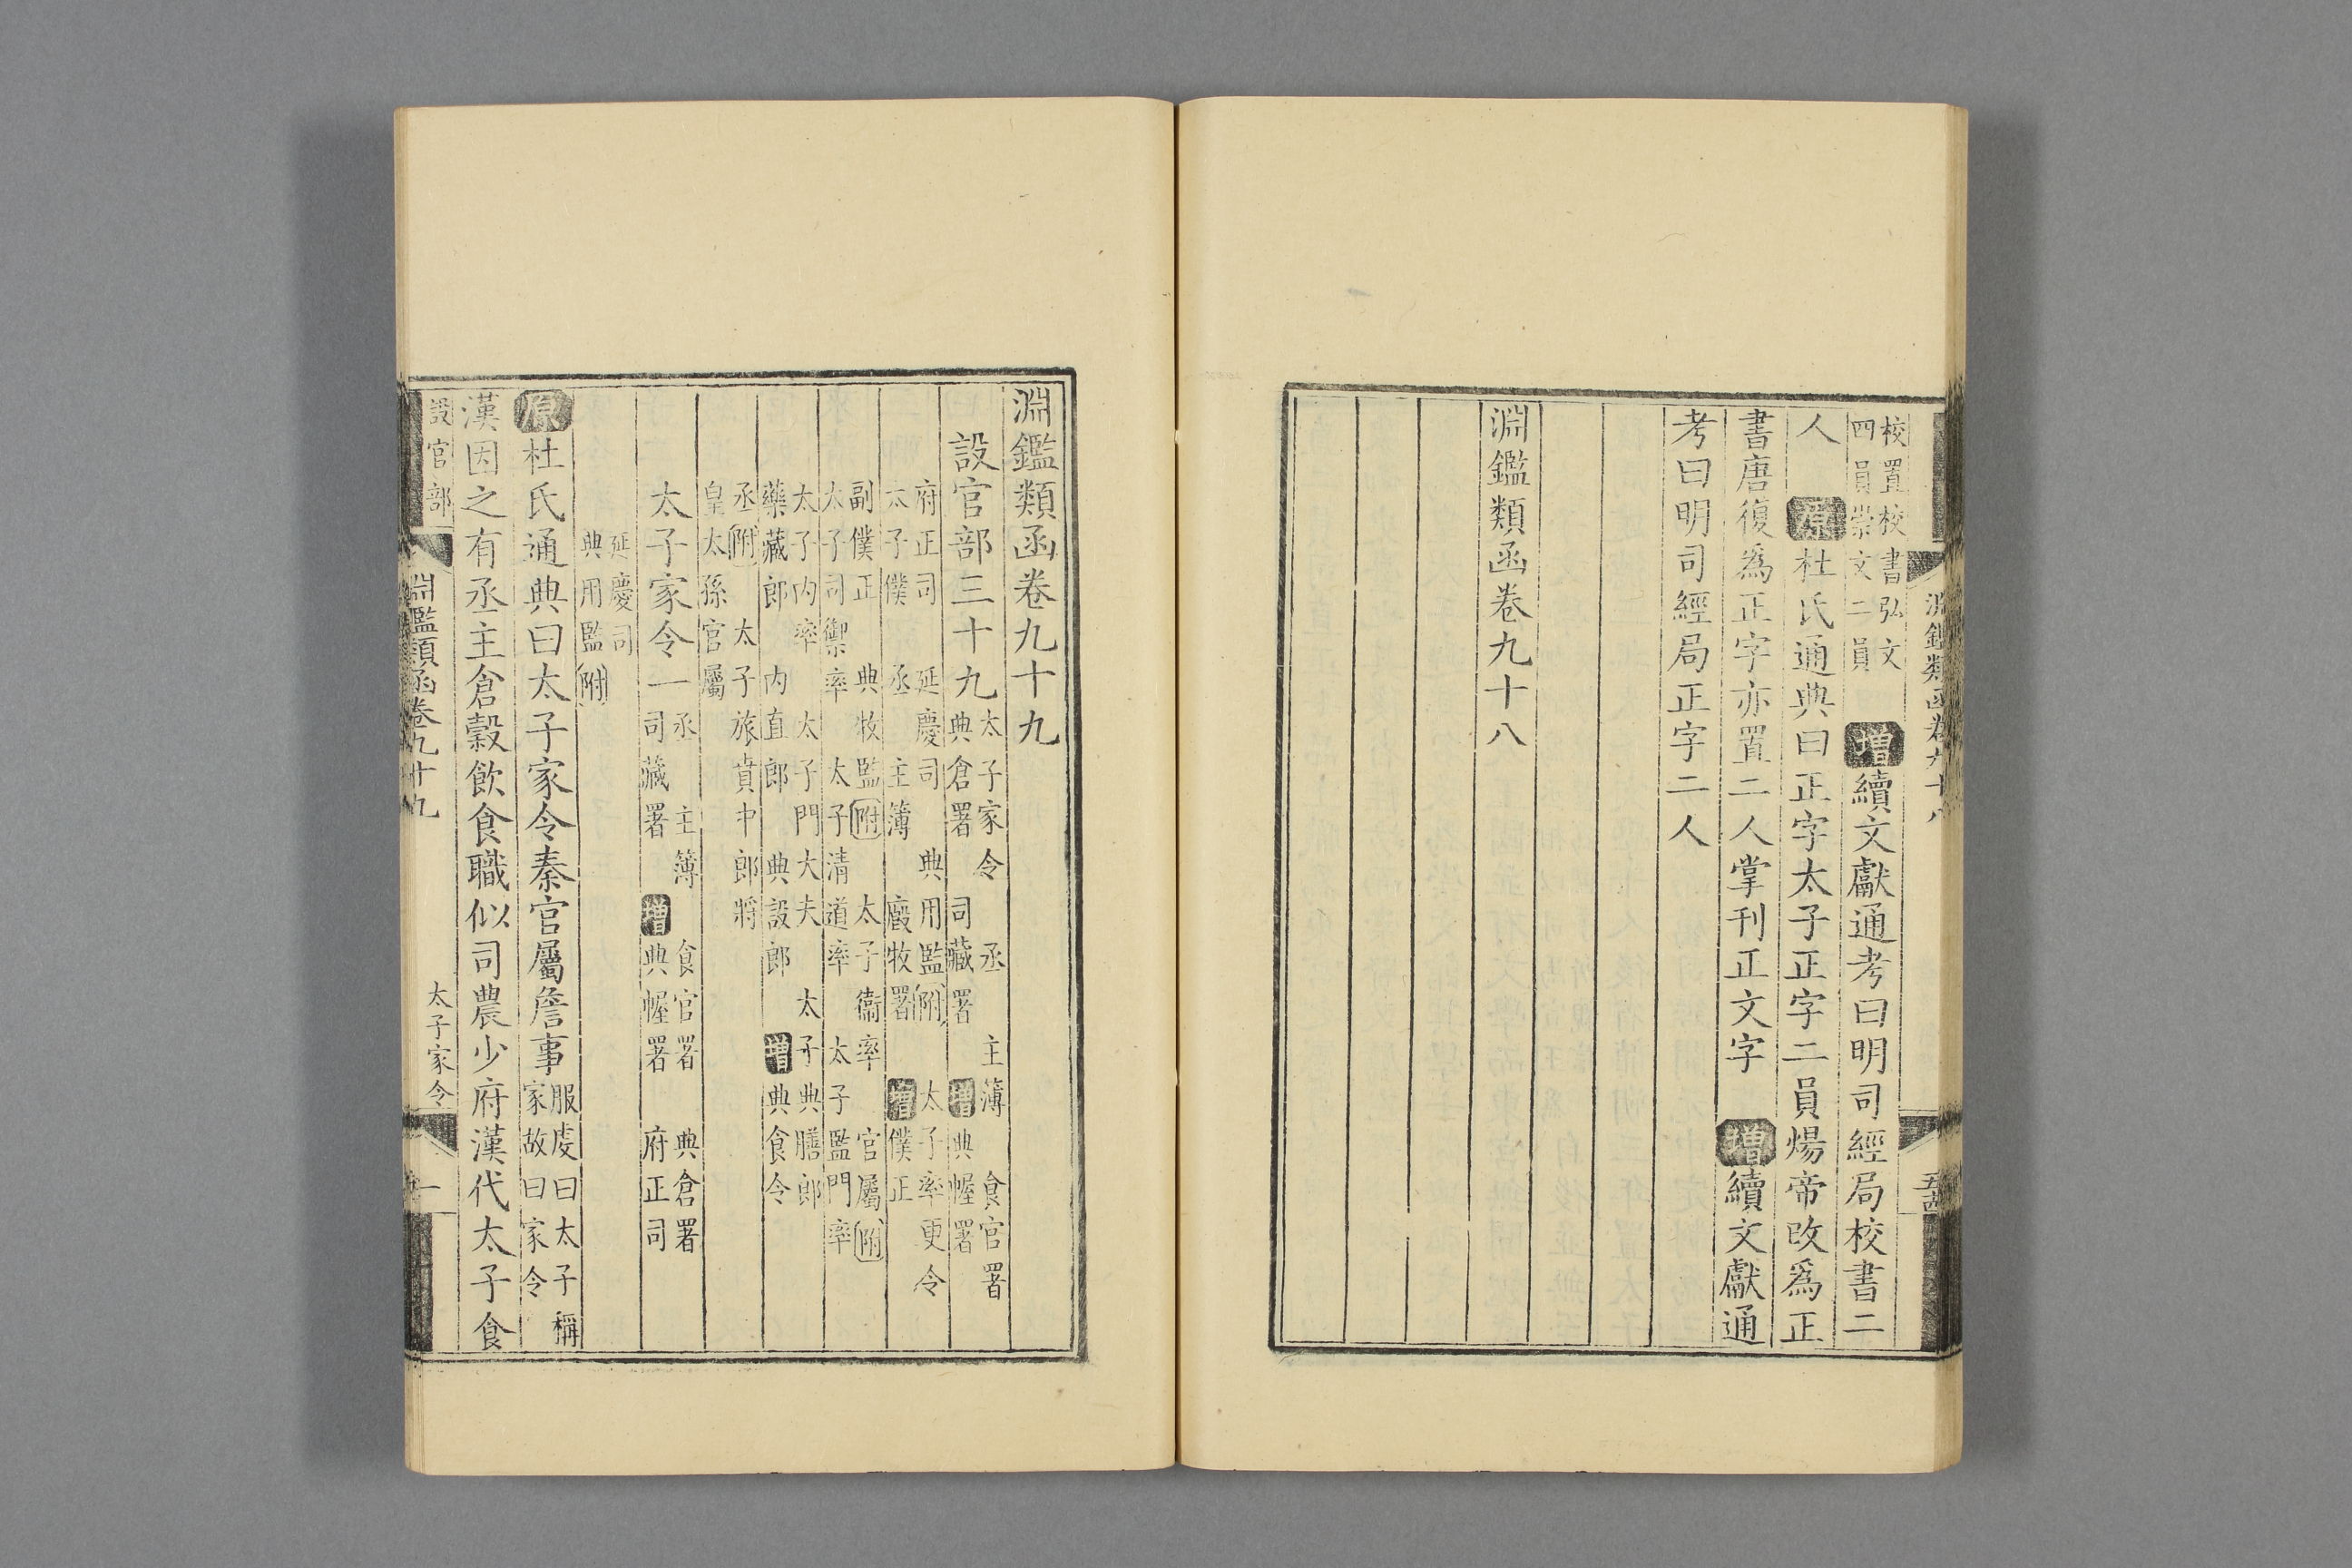 淵鑑類函卷九十八
五十四
校置校書弘文
四員崇文二員
增續文獻通考曰明司經局校書二
人 原杜氏通典曰正字太子正字二員煬帝改爲正
書唐復爲正字亦置二人掌刊正文字 增續文獻通
考曰明司經局正字二人
淵鑑類函卷九十八
淵鑑類函卷九十九
設官部三十九
太子家令 丞 主簿 食官署
典倉署 司藏署 增典幄署
府正司 延慶司 典用監附 太子率更令
太子僕 丞 主簿 廄牧署 增僕正
副僕正 典牧監附 太子衞率 官屬附
太子司禦率 太子清道率 太子監門率
太子內率 太子門大夫 太子典膳郎
藥藏郎 內直郎 典設郎 增典食令
丞附 太子旅賁中郎將
皇太孫官屬
太子家令一
丞 主簿 食官署 典倉署
司藏署 增典幄署 府正司
延慶司
典用監附
原杜氏通典曰太子家令秦官屬詹事
服虔曰太子稱
家故曰家令
漢因之有丞主倉穀飲食職似司農少府漢代太子食
設官部
淵鑑類函卷九十九
太子家令
一